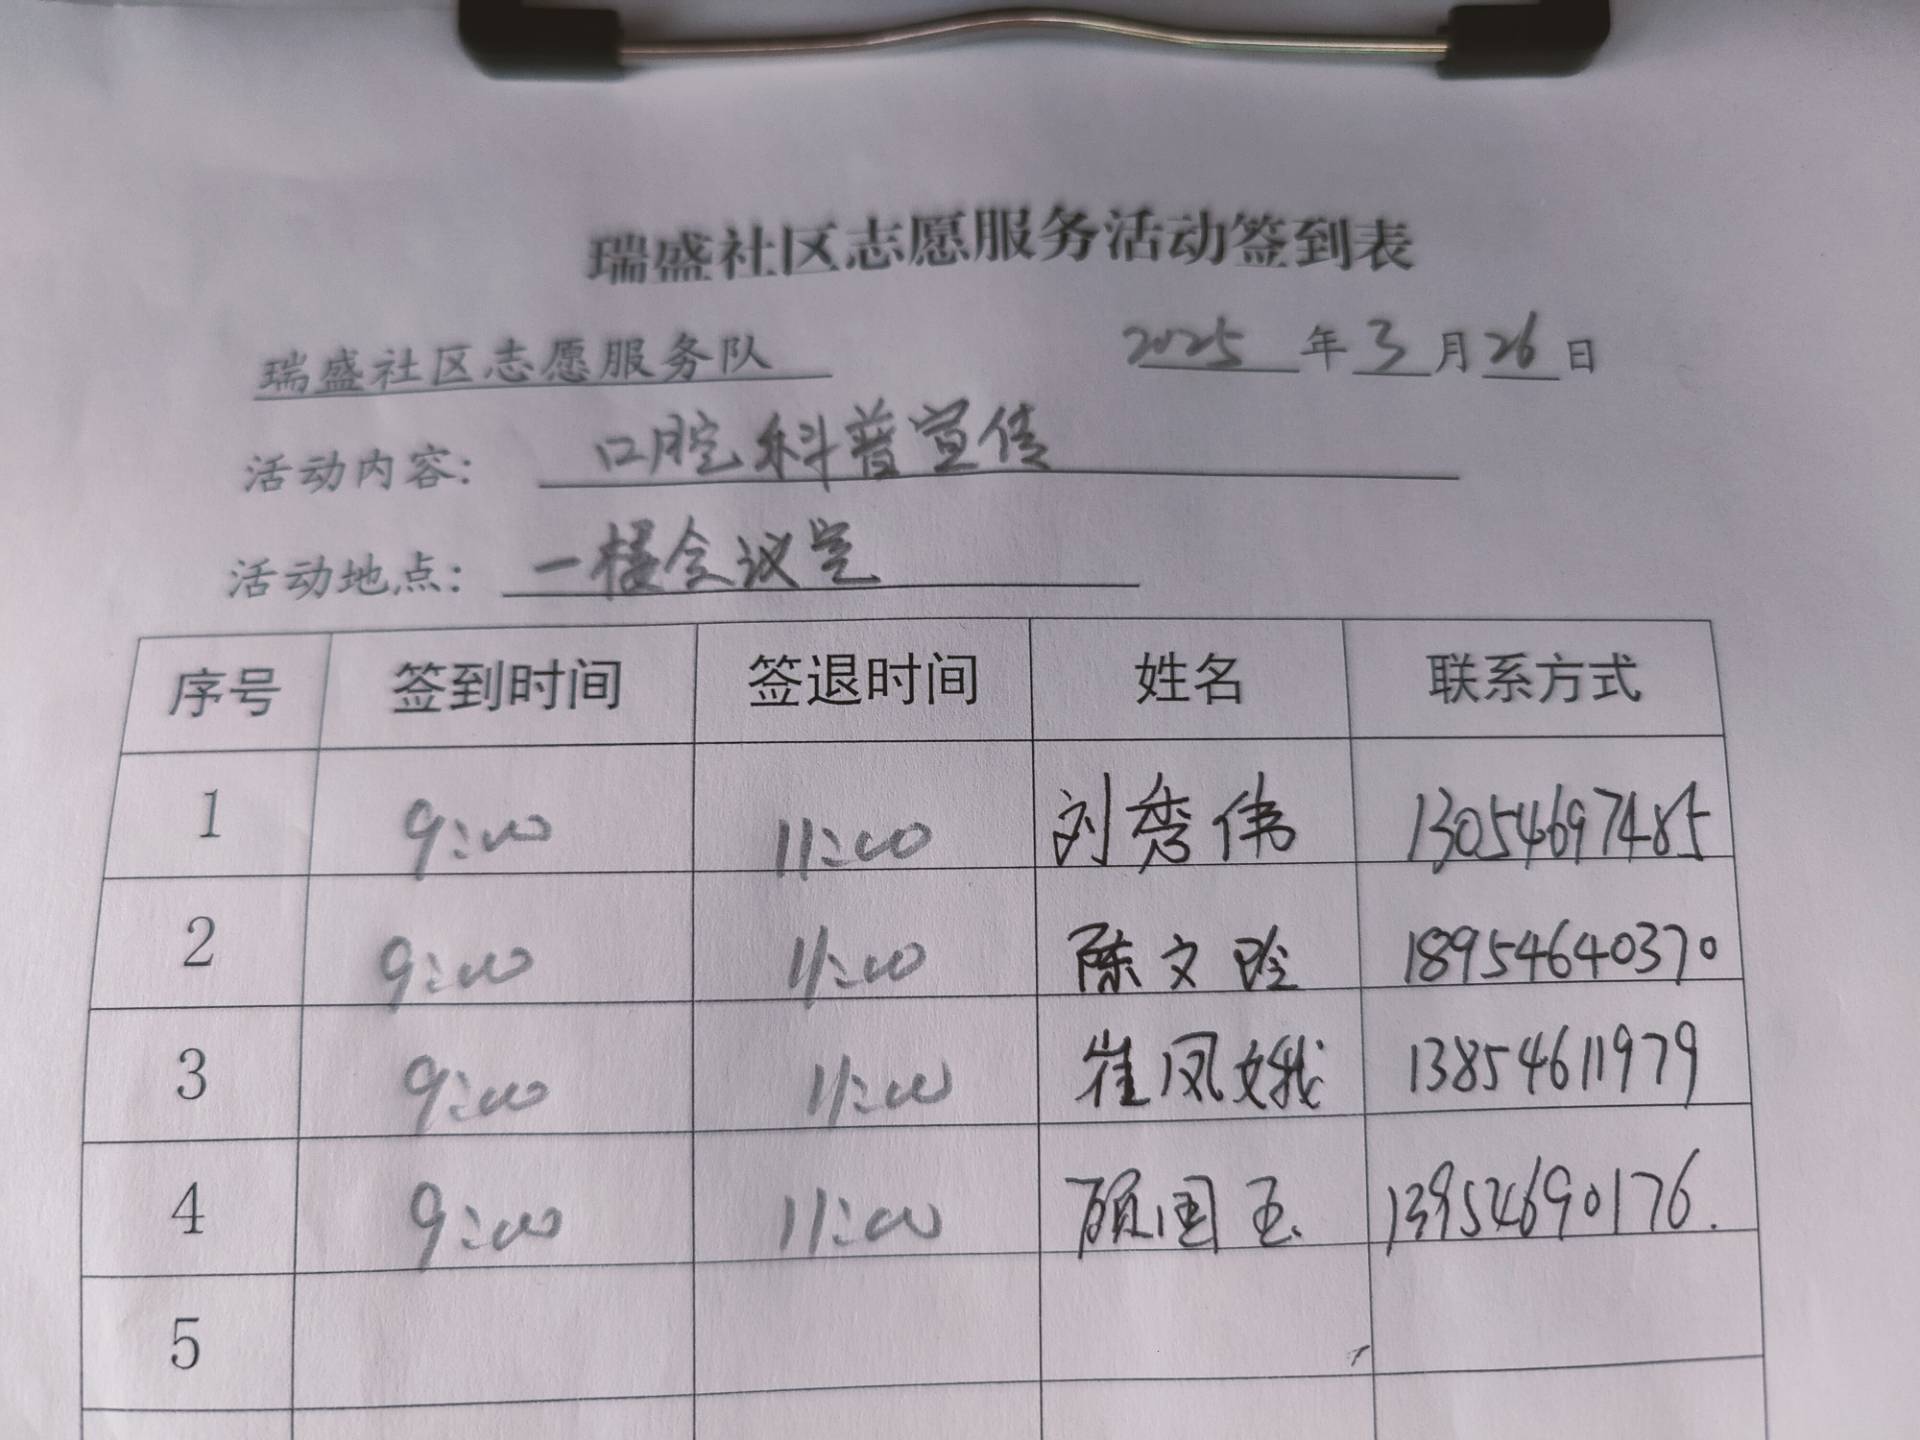 瑞盛社区志愿服务活动签到表
瑞盛社区志愿服务队 2025 年 3 月 26 日
活动内容: 口腔科普宣传
活动地点: 一楼会议室
序号 签到时间 签退时间 姓名 联系方式
1 9:00 11:00 刘秀伟 13054697485
2 9:00 11:00 陈文玲 18954640370
3 9:00 11:00 崔凤娥 13854611979
4 9:00 11:00 顾国玉 13954690176.
5